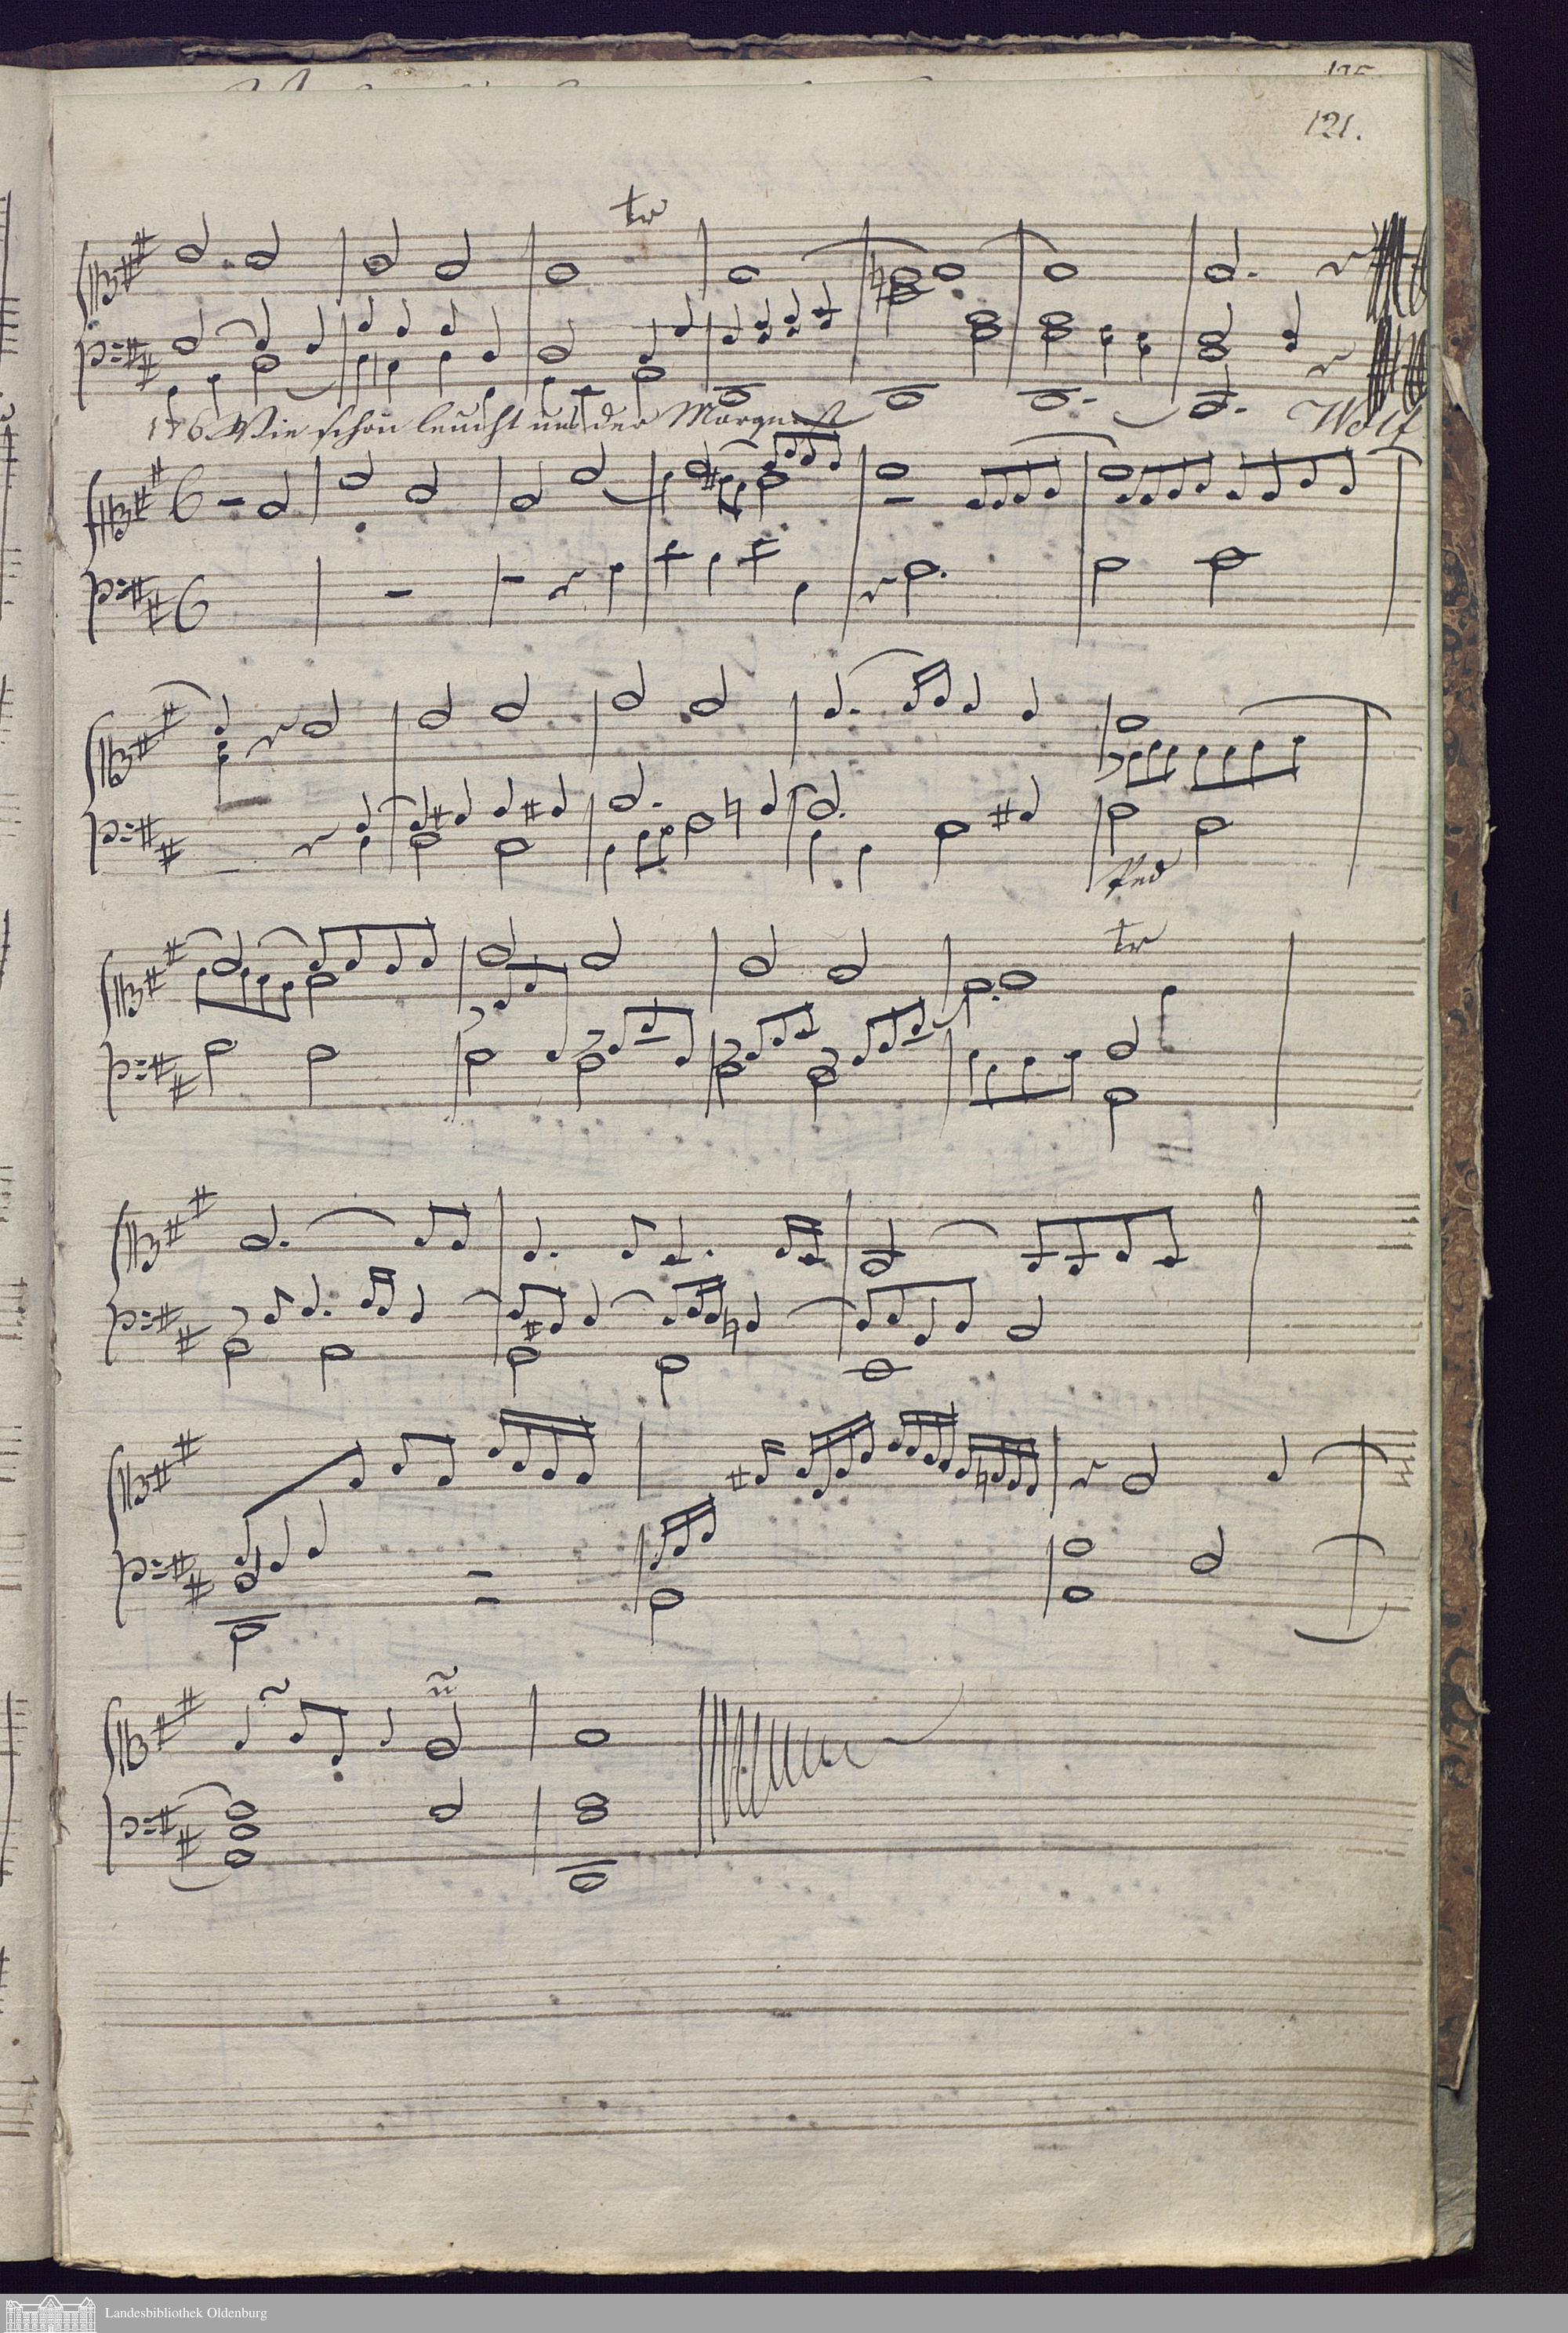 121.
tr
176 Wie schön leucht uns der Morgenst
Wolf
6
6
Ped
tr
Landesbibliothek Oldenburg